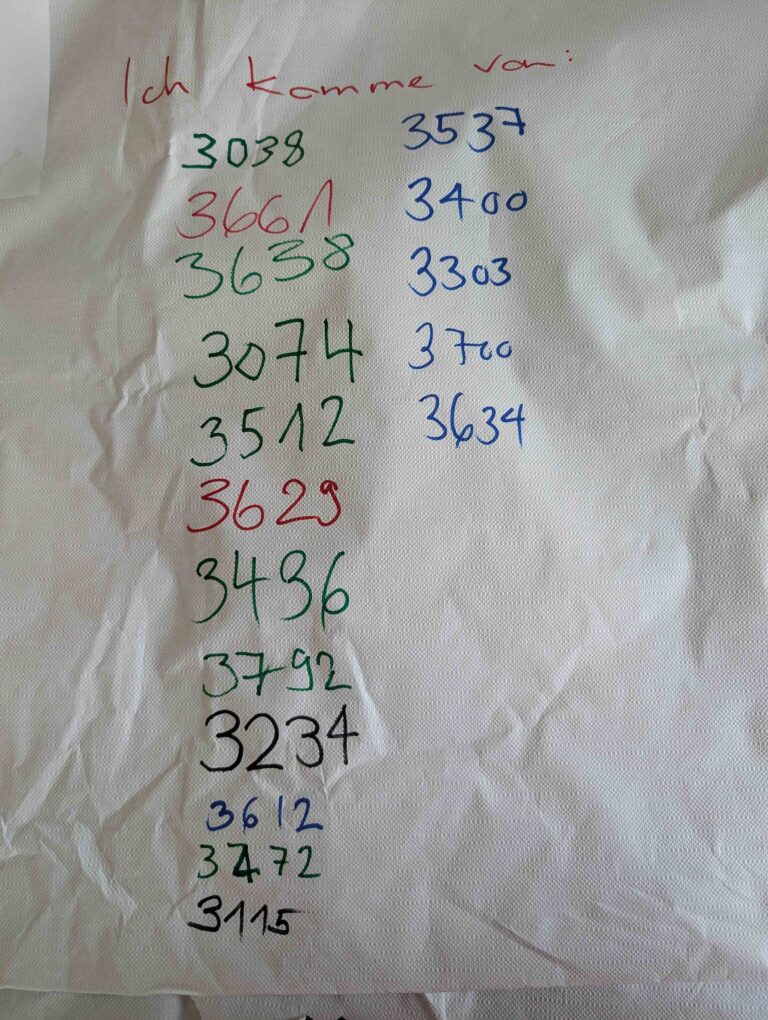 Ich komme von:
3038
3661
3638
3074
3512
3629
3436
3792
3234
3612
3472
3115
3537
3400
3303
3700
3634